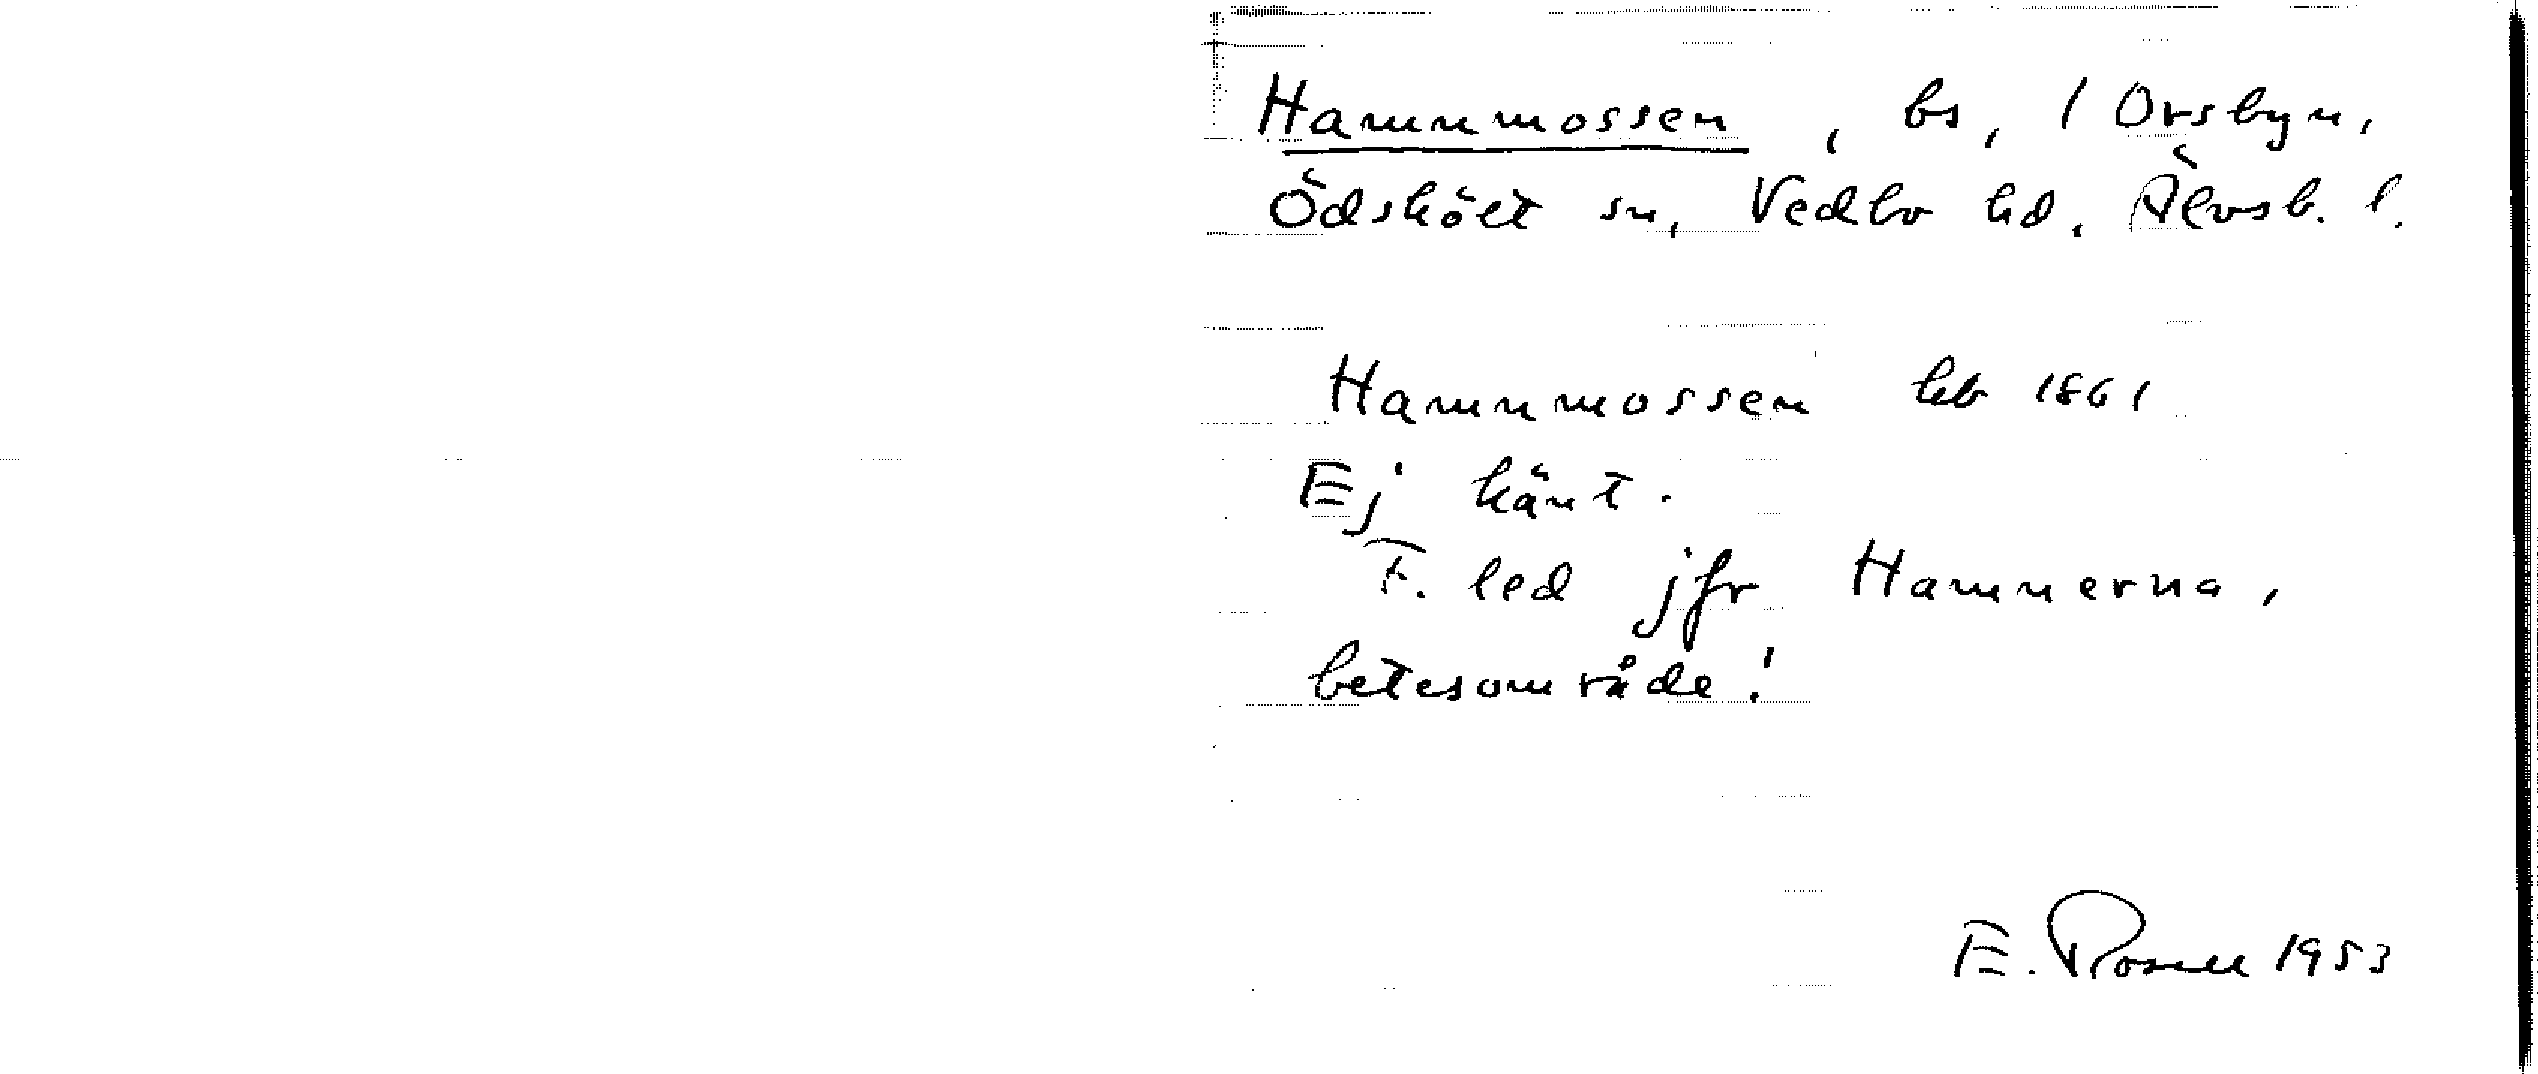 Hamnmossen, bs, 1 Orsbyn,
Ödskölt sn, Vedbo hd. Älvsb. l.
Hamnmossen hb 1861
Ej känt.
F. led jfr Hamnerna,
betesområde!
E. Rosell 1953